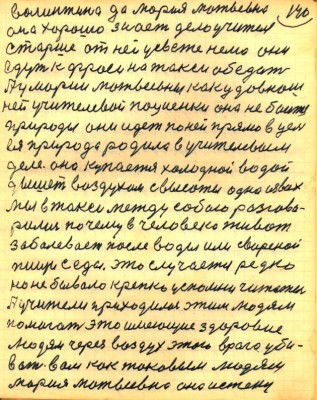 валинтина да мария матвевна 140
она хорошо знает дело учителя
старше от ней уевсте нема они
едут к фроси на такси обедать
Ау марии матвеевны как у довнош
ней учителевой поциенки она не боится
природы они идет по ней прямо в цел
ея природа родила в учительвым
деле. она купается холодной водой
дышет воздухом свысоты одна из вах
мы в такси между собою разгова-
рились почему в человека живот
заболевает после воды или свареной
пищи с еды. это случается редко
но не бывало крепко успомни читатель
Аучителю приходилося этим людям
помогать это имеющие здоровие
людям через воздух этого врага уби-
вать. вам как таковым людям
мария матвеевна она истену